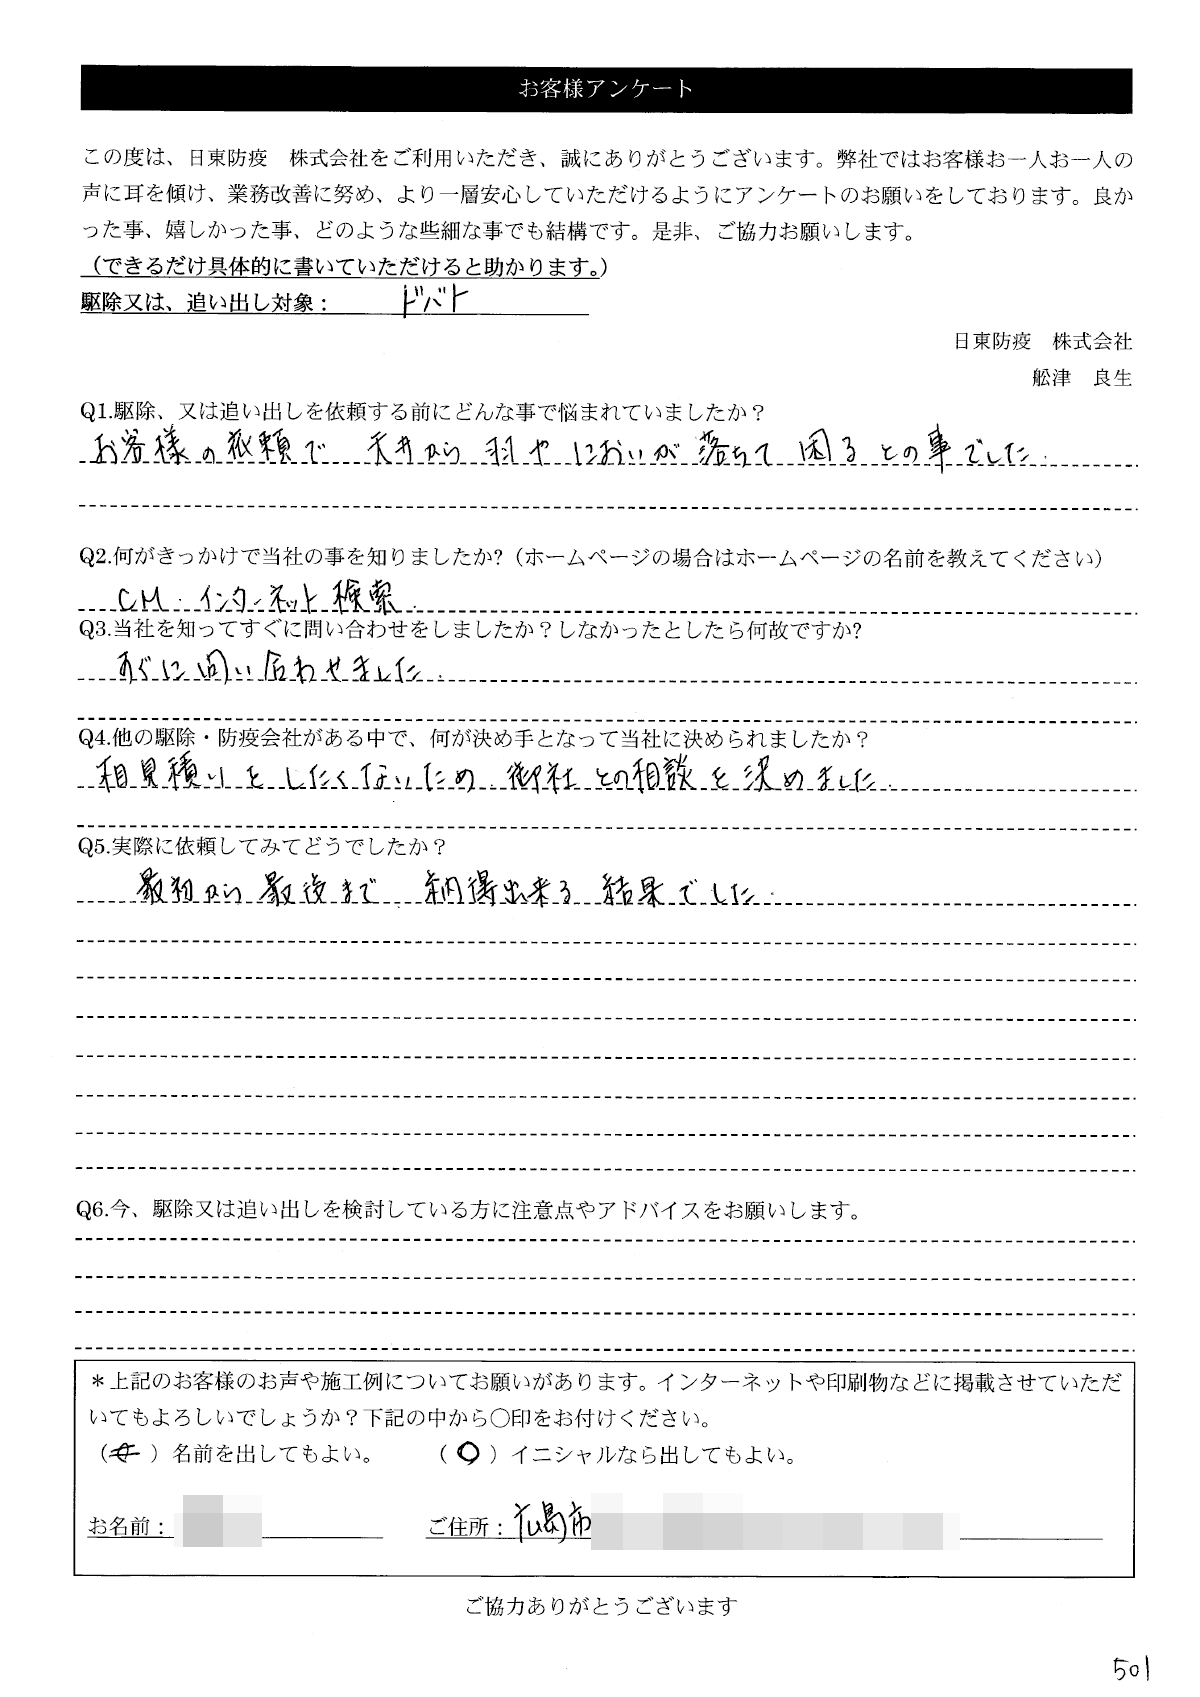 お客様アンケート
この度は、日東防疫　株式会社をご利用いただき、誠にありがとうございます。弊社ではお客様お一人お一人の
声に耳を傾け、業務改善に努め、より一層安心していただけるようにアンケートのお願いをしております。良か
った事、嬉しかった事、どのような些細な事でも結構です。是非、ご協力お願いします。
（できるだけ具体的に書いていただけると助かります。）
駆除又は、追い出し対象： ドバト
日東防疫　株式会社
舩津　良生
Q1.駆除、又は追い出しを依頼する前にどんな事で悩まれていましたか？
お客様の依頼で 天井から羽やにおいが落ちて困るとの事でした.
Q2.何がきっかけで当社の事を知りましたか?（ホームページの場合はホームページの名前を教えてください）
CM・インターネット検索.
Q3.当社を知ってすぐに問い合わせをしましたか？しなかったとしたら何故ですか?
すぐに問い合わせました.
Q4.他の駆除・防疫会社がある中で、何が決め手となって当社に決められましたか？
相見積りをしたくないため 御社との相談を決めました.
Q5.実際に依頼してみてどうでしたか？
最初から最後まで 納得出来る結果でした.
Q6.今、駆除又は追い出しを検討している方に注意点やアドバイスをお願いします。
＊上記のお客様のお声や施工例についてお願いがあります。インターネットや印刷物などに掲載させていただ
いてもよろしいでしょうか？下記の中から○印をお付けください。
（ ）名前を出してもよい。 （ ○ ）イニシャルなら出してもよい。
お名前： ご住所：広島市
ご協力ありがとうございます
501